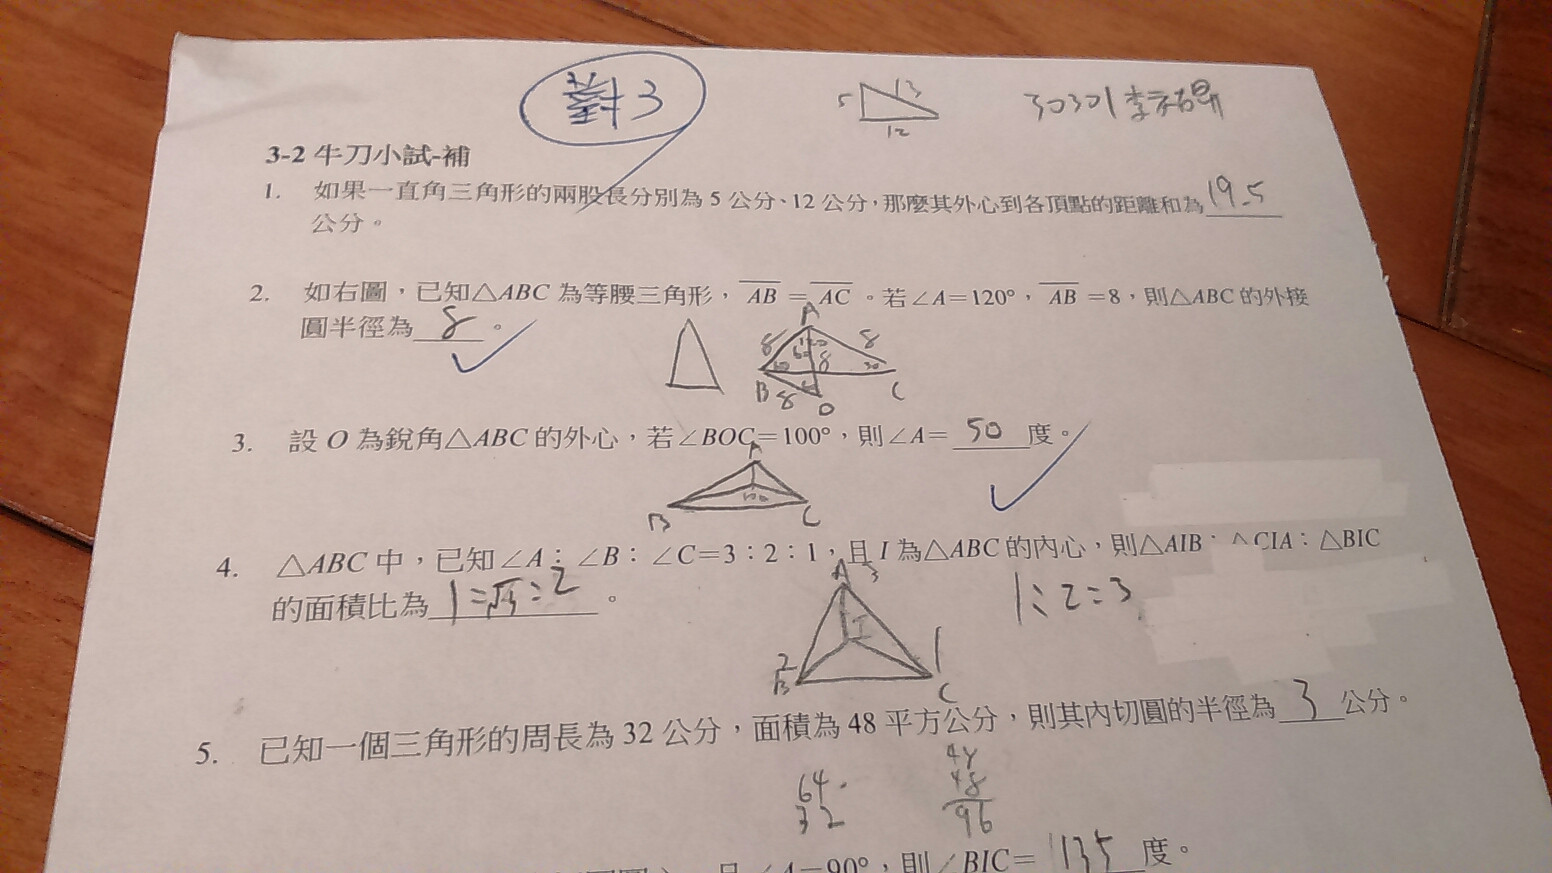 對3
5 13 12
30301
3-2 牛刀小試-補
1. 如果一直角三角形的兩股長分別為 5 公分、12 公分,那麼其外心到各頂點的距離和為 19.5
公分。
2. 如右圖,已知△ABC 為等腰三角形,AB = AC。若∠A=120°,AB =8,則△ABC 的外接
圓半徑為 8 。
A
8 120 8
60 8
30
B 8 O C
3. 設 O 為銳角△ABC 的外心,若∠BOC=100°,則∠A= 50 度。
A
100
B C
4. △ABC 中,已知∠A:∠B:∠C=3:2:1,且 I 為△ABC 的內心,則△AIB:△CIA:△BIC
的面積比為 1:√3:2 。
1:2:3
A 3
I
2 1
B C
5. 已知一個三角形的周長為 32 公分,面積為 48 平方公分,則其內切圓的半徑為 3 公分。
64 48
32 48
96
∠A=90°,則∠BIC= 135 度。